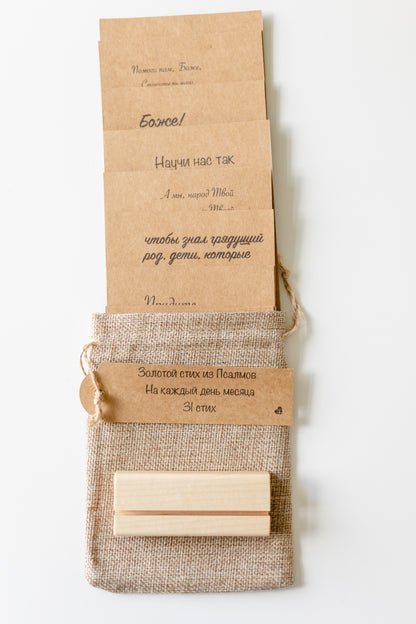 Помоги нам, Боже,
Боже!
Научи нас так
А мы, народ Твой
чтобы знал грядущий
род, дети, которые
Придите
Золотой стих из Псалмов
На каждый день месяца
31 стих